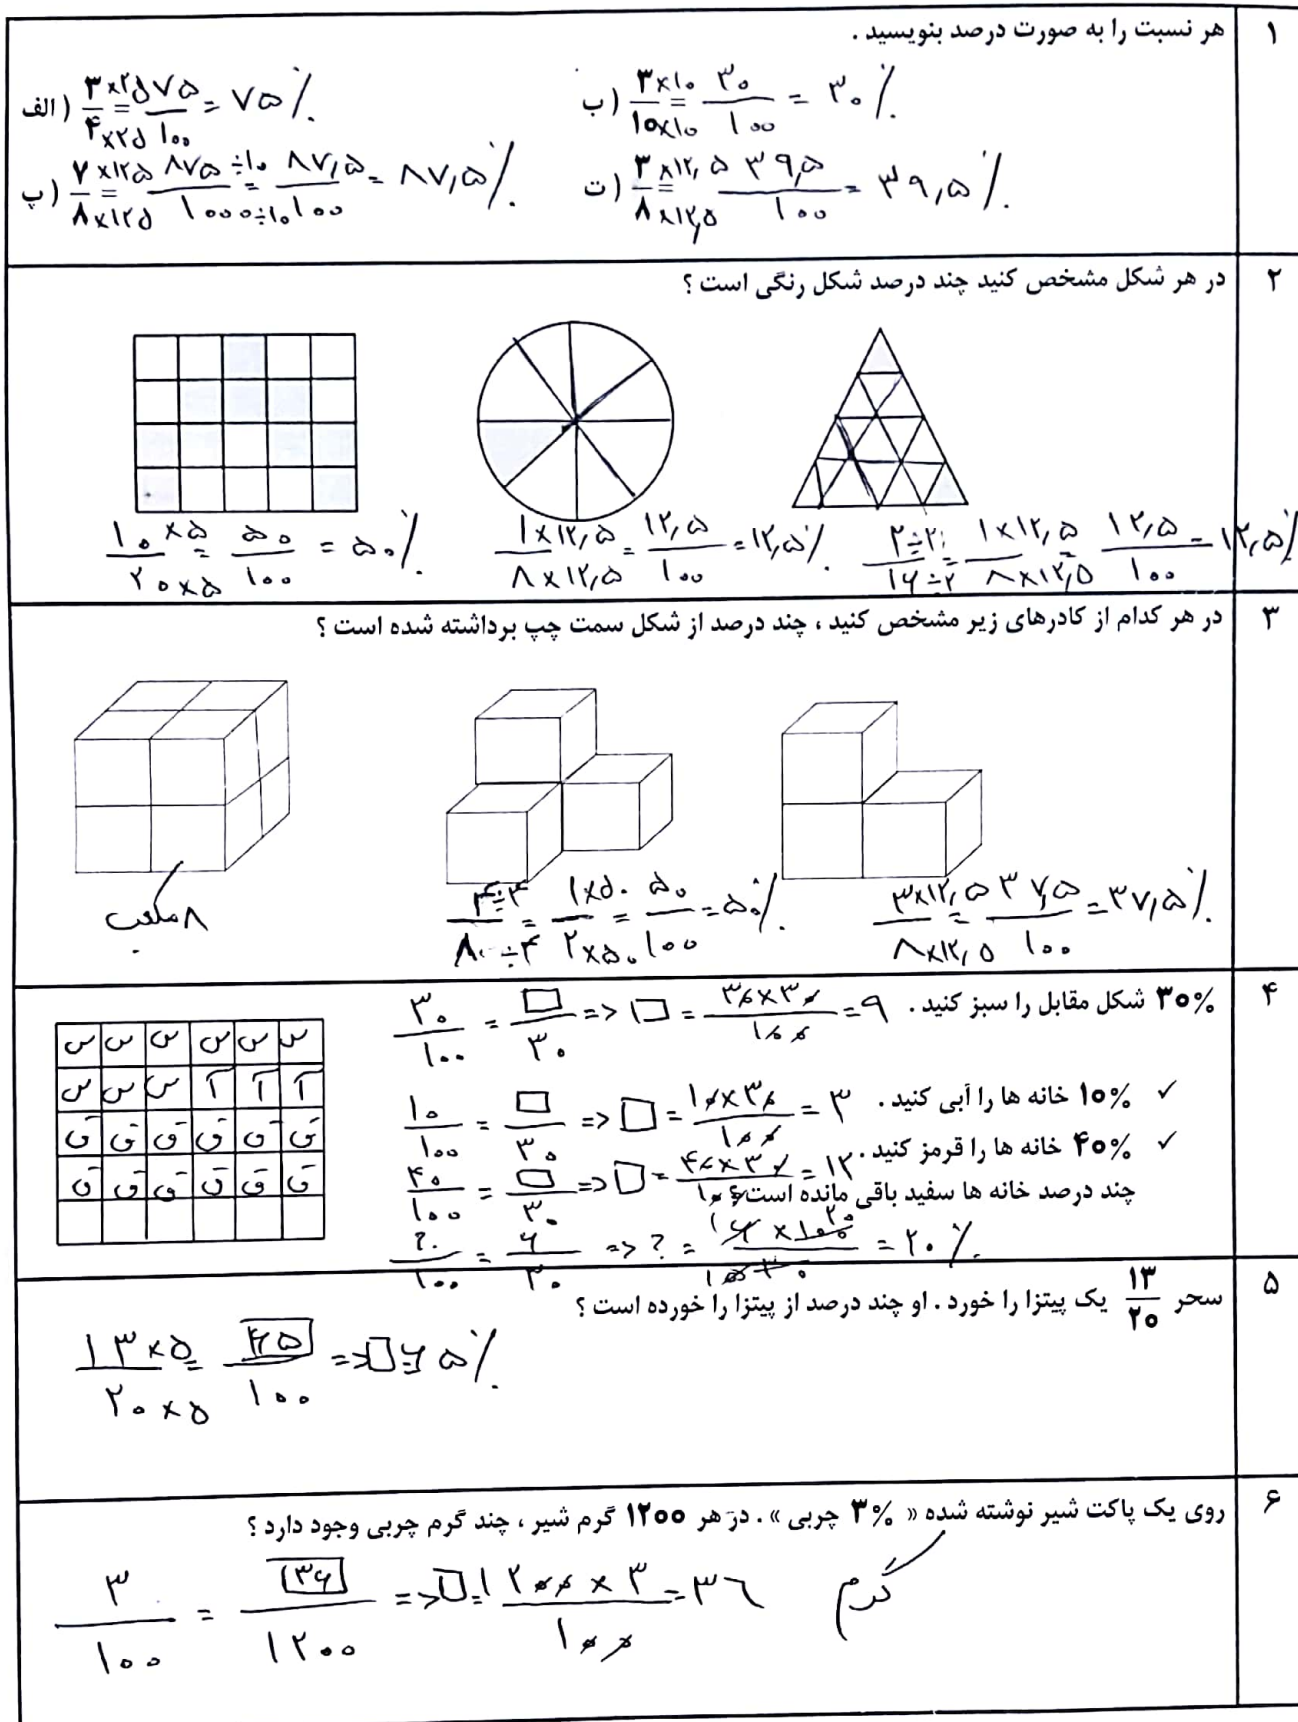 ۱ هر نسبت را به صورت درصد بنویسید .
الف ) ۳×۲۵/۴×۲۵ = ۷۵/۱۰۰ = ۷۵٪
ب ) ۳×۱۰/۱۰×۱۰ = ۳۰/۱۰۰ = ۳۰٪
پ ) ۷×۱۲۵/۸×۱۲۵ = ۸۷۵÷۱۰/۱۰۰۰÷۱۰ = ۸۷,۵/۱۰۰ = ۸۷,۵٪
ت ) ۳×۱۲,۵/۸×۱۲,۵ = ۳۹,۵/۱۰۰ = ۳۹,۵٪
۲ در هر شکل مشخص کنید چند درصد شکل رنگی است ؟
۱۰×۵/۲۰×۵ = ۵۰/۱۰۰ = ۵۰٪
۱×۱۲,۵/۸×۱۲,۵ = ۱۲,۵/۱۰۰ = ۱۲,۵٪
۲÷۲/۱۶÷۲ = ۱×۱۲,۵/۸×۱۲,۵ = ۱۲,۵/۱۰۰ = ۱۲,۵٪
۳ در هر کدام از کادرهای زیر مشخص کنید ، چند درصد از شکل سمت چپ برداشته شده است ؟
۸ مکعب
۴÷۴/۸÷۴ = ۱×۵۰/۲×۵۰ = ۵۰/۱۰۰ = ۵۰٪
۳×۱۲,۵/۸×۱۲,۵ = ۳۷,۵/۱۰۰ = ۳۷,۵٪
۴ ۳۰% شکل مقابل را سبز کنید .
۳۰/۱۰۰ = □/۳۰ => □ = ۳۰×۳۰/۱۰۰ = ۹
✓ ۱۰% خانه ها را آبی کنید .
۱۰/۱۰۰ = □/۳۰ => □ = ۱۰×۳۰/۱۰۰ = ۳
✓ ۴۰% خانه ها را قرمز کنید .
۴۰/۱۰۰ = □/۳۰ => □ = ۴۰×۳۰/۱۰۰ = ۱۲
چند درصد خانه ها سفید باقی مانده است ؟
?/۱۰۰ = ۶/۳۰ => ? = ۶×۱۰۰/۳۰ = ۲۰٪
س س س س س س
س س س آ آ آ
ق ق ق ق ق ق
ق ق ق ق ق ق
۵ سحر ۱۳/۲۰ یک پیتزا را خورد . او چند درصد از پیتزا را خورده است ؟
۱۳×۵/۲۰×۵ = ۶۵/۱۰۰ => □ = ۶۵٪
۶ روی یک پاکت شیر نوشته شده « ۳% چربی » . در هر ۱۲۰۰ گرم شیر ، چند گرم چربی وجود دارد ؟
۳/۱۰۰ = ۳۶/۱۲۰۰ => □ = ۱۲۰۰×۳/۱۰۰ = ۳۶ گرم